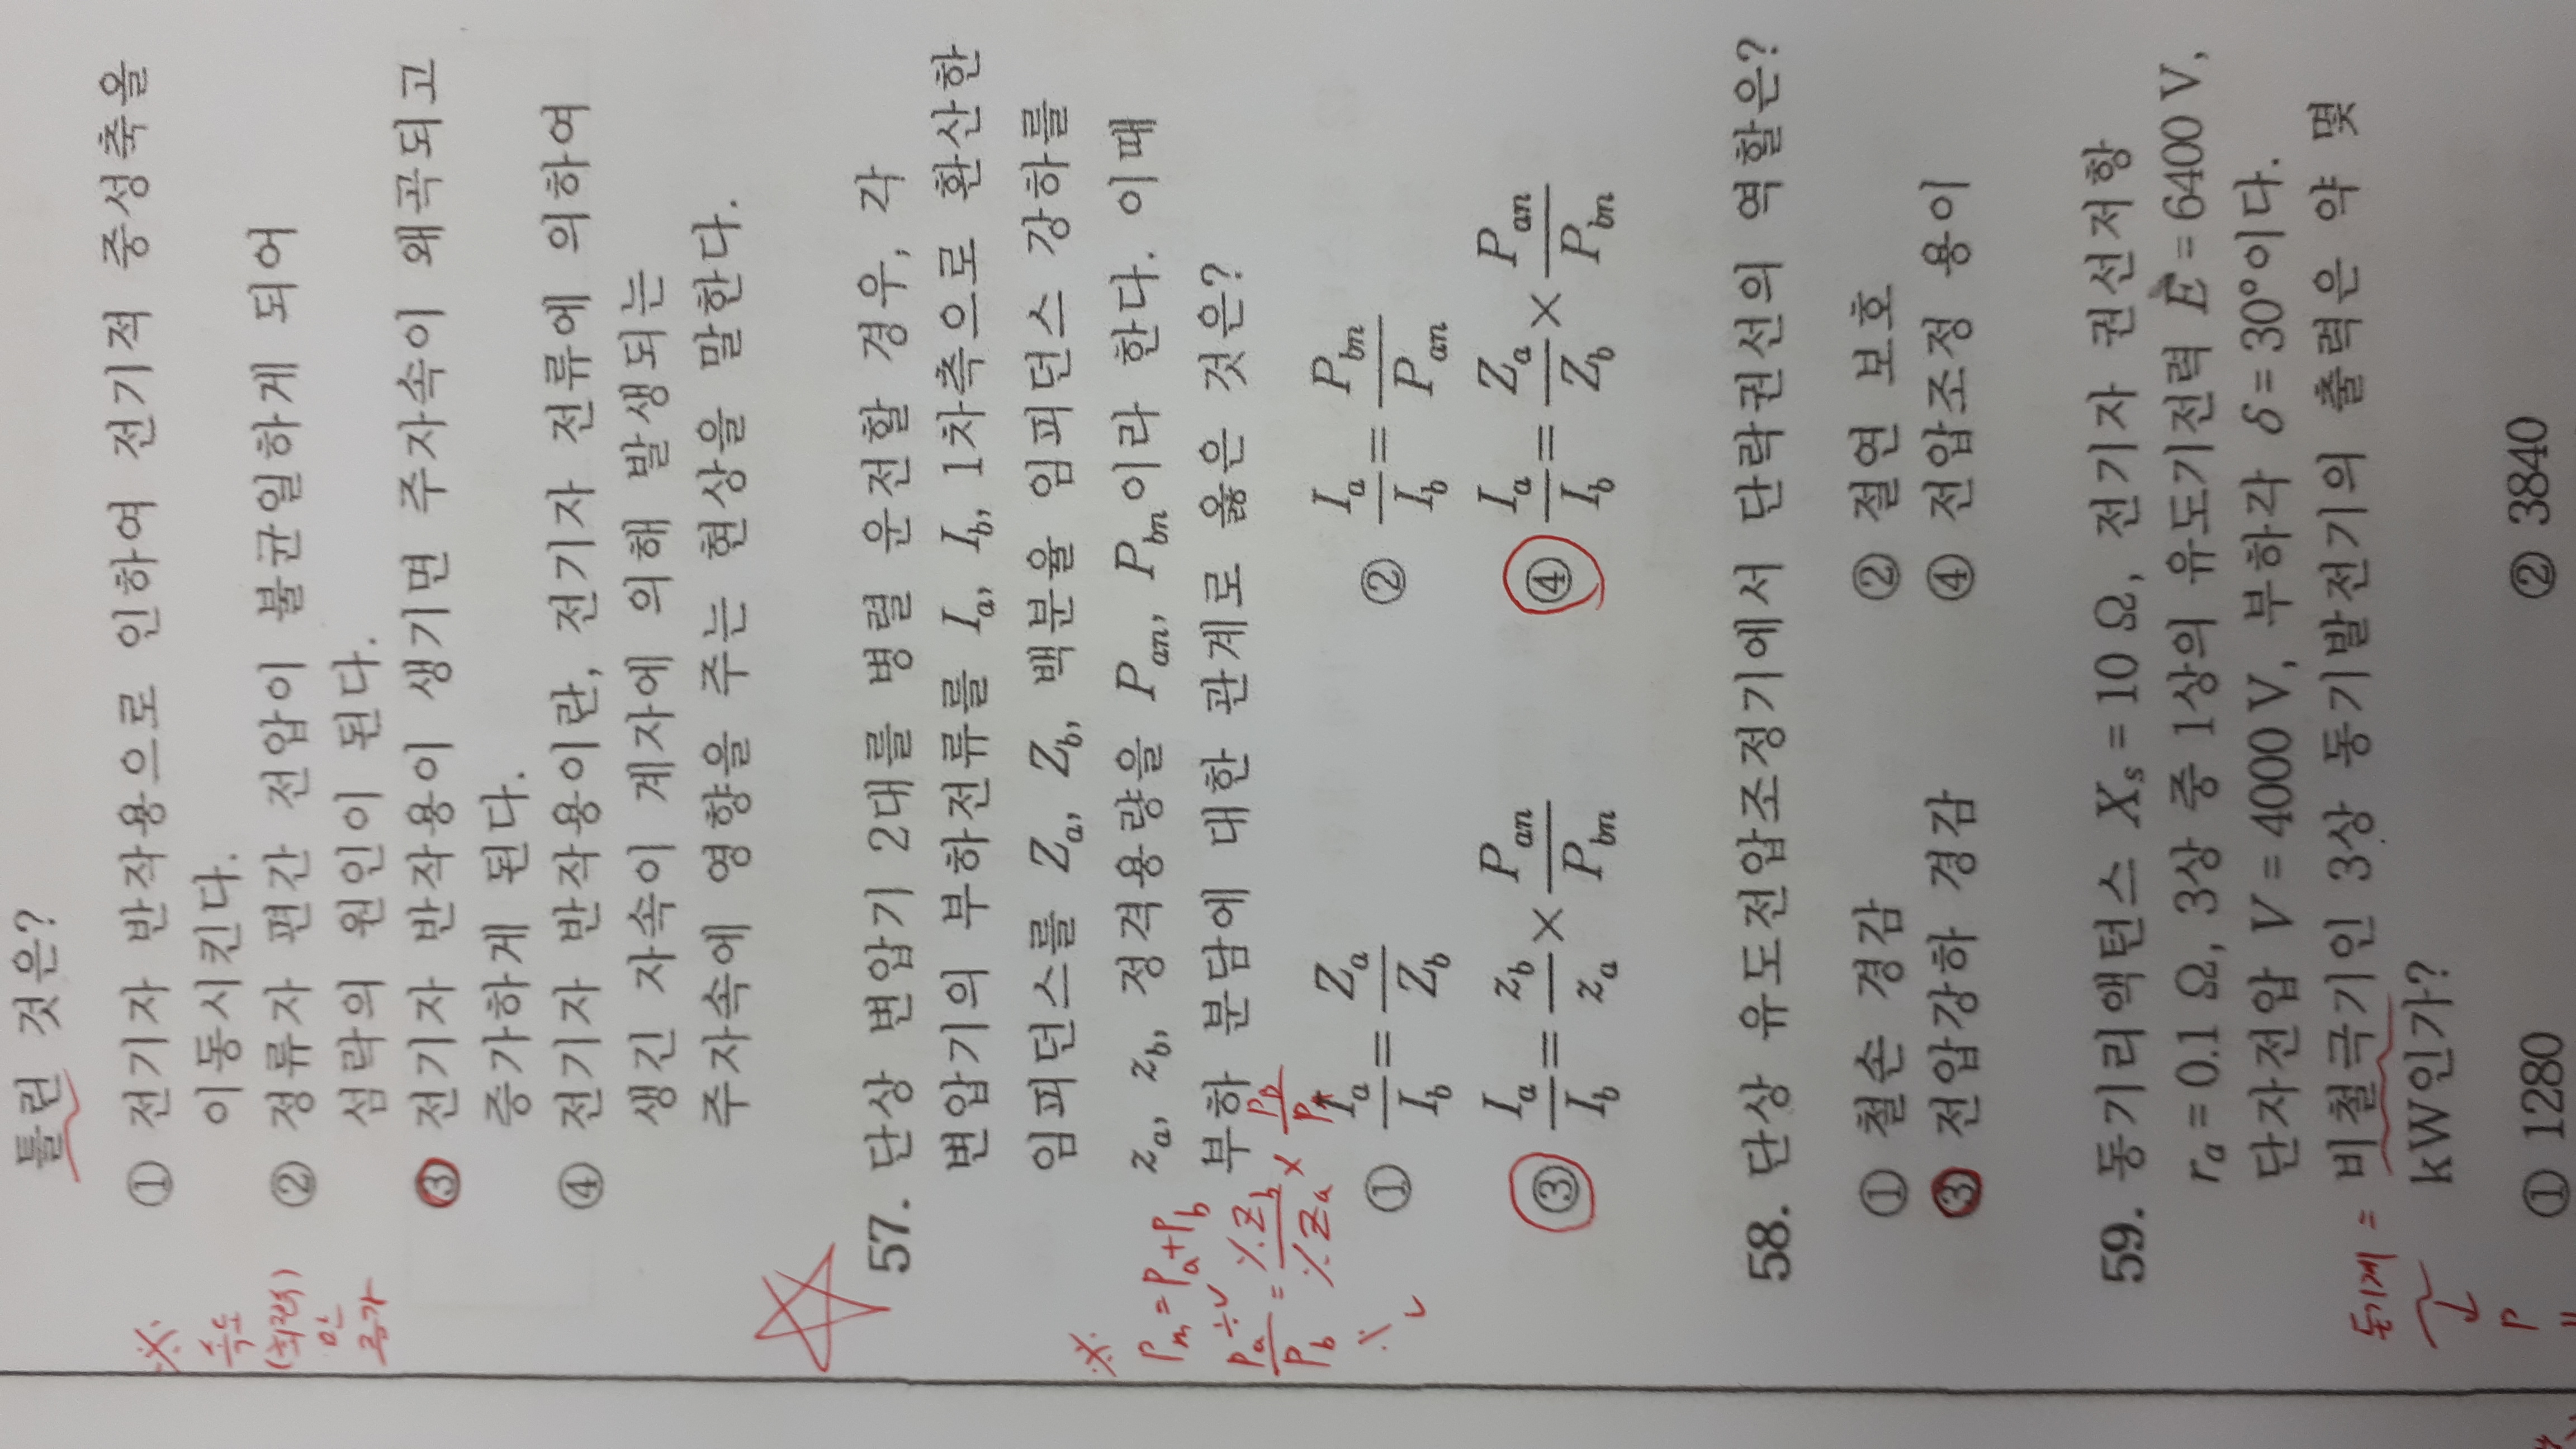 틀린 것은?
① 전기자 반작용으로 인하여 전기적 중성축을
이동시킨다.
② 정류자 편간 전압이 불균일하게 되어
섬락의 원인이 된다.
③ 전기자 반작용이 생기면 주자속이 왜곡되고
증가하게 된다.
④ 전기자 반작용이란, 전기자 전류에 의하여
생긴 자속이 계자에 의해 발생되는
주자속에 영향을 주는 현상을 말한다.
※ 속도
57. 단상 변압기 2대를 병렬 운전할 경우, 각
변압기의 부하전류를 Ia, Ib, 1차측으로 환산한
임피던스를 Za, Zb, 백분율 임피던스 강하를
za, zb, 정격용량을 Pan, Pbn이라 한다. 이때
부하 분담에 대한 관계로 옳은 것은?
① Ia/Ib = Za/Zb ② Ia/Ib = Pbn/Pan
③ Ia/Ib = zb/za × Pan/Pbn ④ Ia/Ib = Za/Zb × Pan/Pbn
※
Pm = Pa + Pb
Pa/Pb = %Zb/%Za ×
58. 단상 유도전압조정기에서 단락권선의 역할은?
① 철손 경감 ② 절연 보호
③ 전압강하 경감 ④ 전압조정 용이
59. 동기리액턴스 Xs = 10 Ω, 전기자 권선저항
ra = 0.1 Ω, 3상 중 1상의 유도기전력 E = 6400 V,
단자전압 V = 4000 V, 부하각 δ = 30°이다.
비철극기인 3상 동기발전기의 출력은 약 몇
kW인가?
① 1280 ② 3840